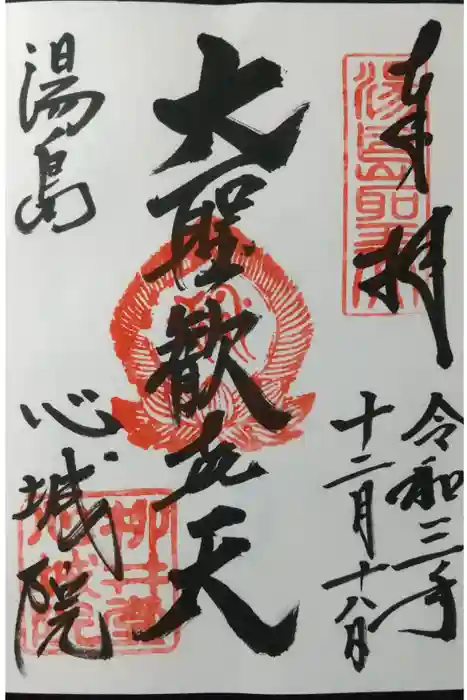 奉拝
令和三年
十二月十八日
大聖歓喜天
湯島
心城院
湯島聖天
柳井堂
心城院